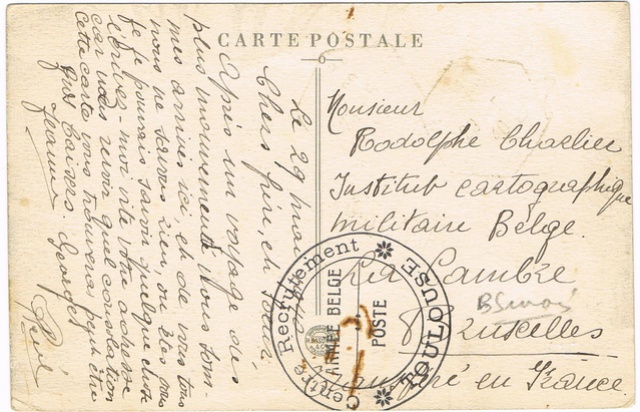 CARTE POSTALE
Le 29 mai
Chers frère, et sœur
Après un voyage des
plus mouvementé nous som-
mes arrivés ici, et de vous tous
nous ne savons rien, où êtes vous
je pouvais savoir quelque chose
écrivez-moi vite votre adresse
car vous revoir quel consolation
cette carte vous trouvera peut être
Bons baisers. Georges
Jeanne
René
Monsieur
Rodolphe Charlier
Institut cartographique
militaire Belge.
La Cambre
Bruxelles
Transféré en France.
Centre Recrutement
TOULOUSE
ARMÉE BELGE
POSTE